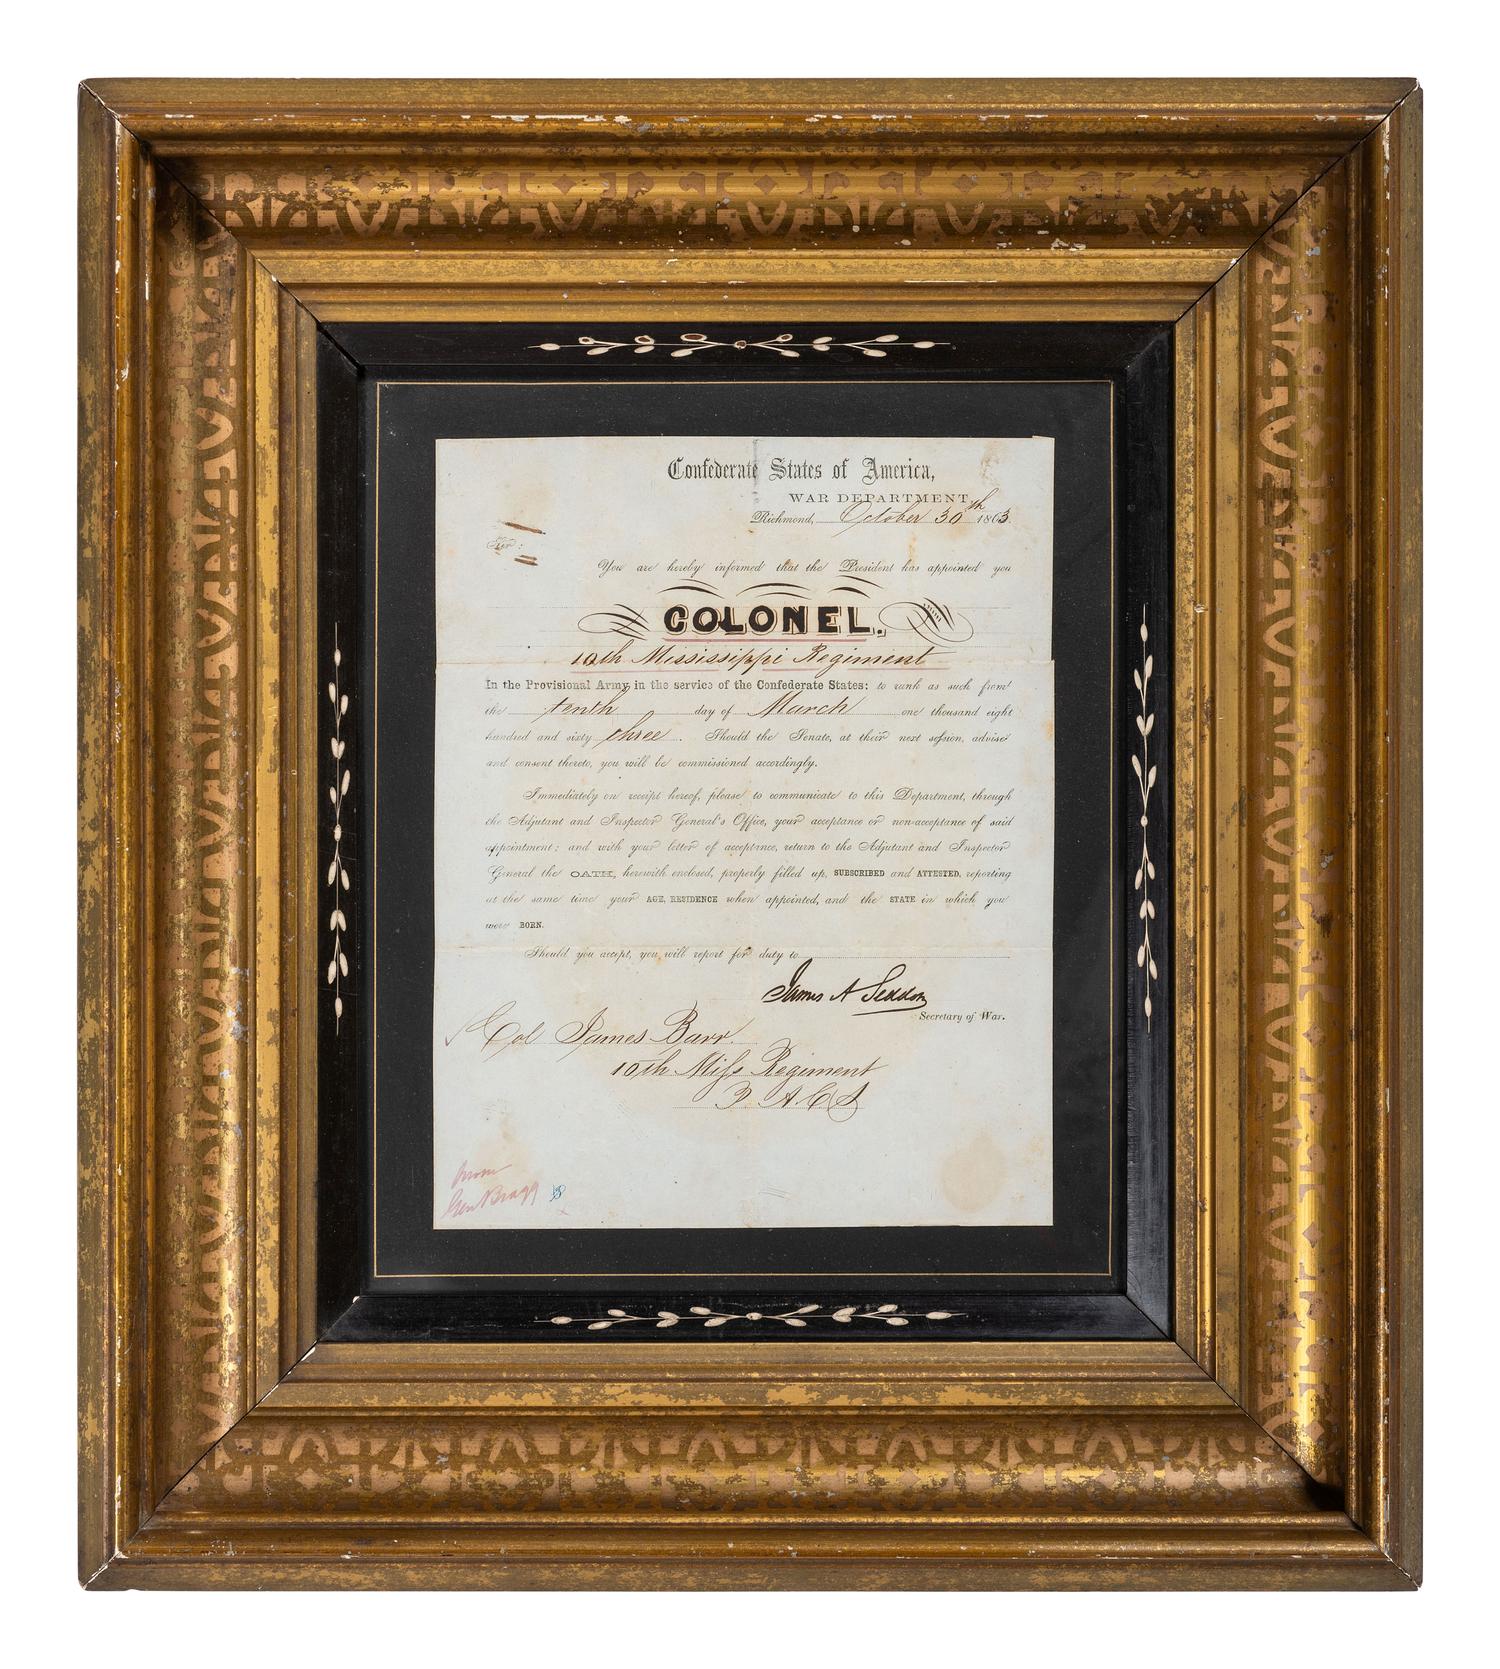 Confederate States of America,
WAR DEPARTMENT,
Richmond, October 30th 1863.
Sir:
You are hereby informed that the President has appointed you
COLONEL.
10th Mississippi Regiment
In the Provisional Army in the service of the Confederate States: to rank as such from
the tenth day of March one thousand eight
hundred and sixty three. Should the Senate, at their next session, advise
and consent thereto, you will be commissioned accordingly.
Immediately on receipt hereof, please to communicate to this Department, through
the Adjutant and Inspector General's Office, your acceptance or non-acceptance of said
appointment; and with your letter of acceptance, return to the Adjutant and Inspector
General the OATH, herewith enclosed, properly filled up, SUBSCRIBED and ATTESTED, reporting
at the same time your AGE, RESIDENCE when appointed, and the STATE in which you
were BORN.
Should you accept, you will report for duty to
James A Seddon
Secretary of War.
Col James Barr.
10th Miss Regiment
P. A. C. S
Gen Bragg